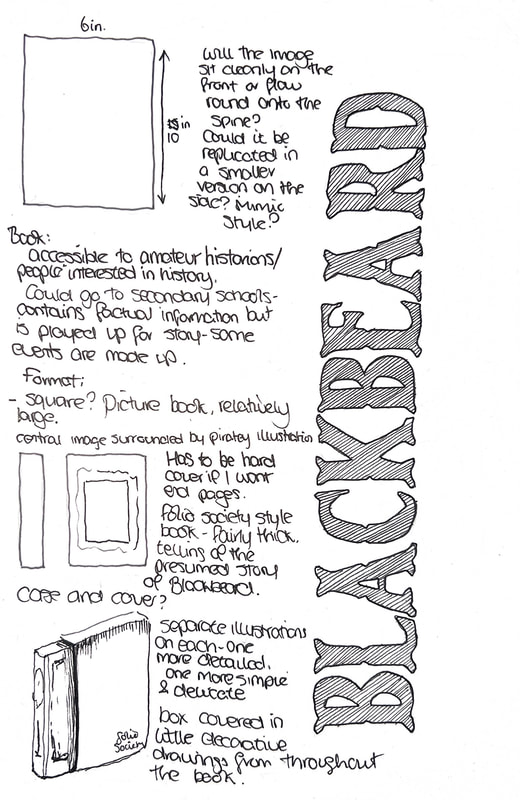 6in.
in
10
will the image
sit cleanly on the
front or flow
round onto the
spine?
Could it be
replicated in
a smaller
version on the
side? Mimic
style?
Book:
accessible to amateur historians/
people interested in history.
Could go to secondary schools-
contains factual information but
is played up for story-some
events are made up.
Format:
- square? Picture book, relatively
large.
central image surrounded by piratey illustration
Has to be hard
cover if I want
end pages.
folio society style
book - fairly thick,
telling of the
presumed story
of Blackbeard.
case and cover?
separate illustrations
on each-one
more detailed,
one more simple
& delicate
box covered in
little decorative
drawings from throughout
the book.
folio
society
BLACKBEARD